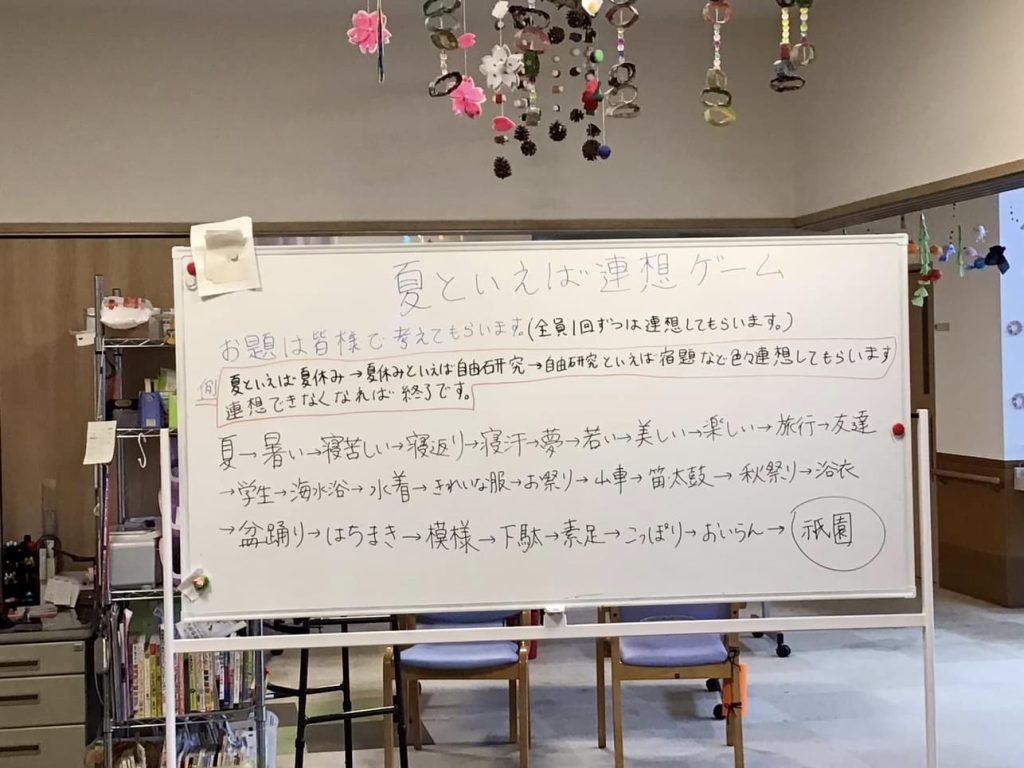 夏といえば連想ゲーム
お題は皆様で考えてもらいます。(全員1回ずつは連想してもらいます。)
例 夏といえば夏休み→夏休みといえば自由研究→自由研究といえば宿題など色々連想してもらいます
連想できなくなれば終了です。
夏→暑い→寝苦しい→寝返り→寝汗→夢→若い→美しい→楽しい→旅行→友達
→学生→海水浴→水着→きれいな服→お祭り→山車→笛太鼓→秋祭り→浴衣
→盆踊り→はちまき→模様→下駄→素足→こっぽり→おいらん→祇園